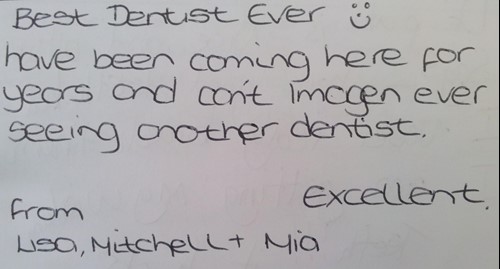 Best Dentist Ever ☺
have been coming here for
years and can't imagen ever
seeing another dentist.
Excellent.
From
Lisa, Mitchell + Mia